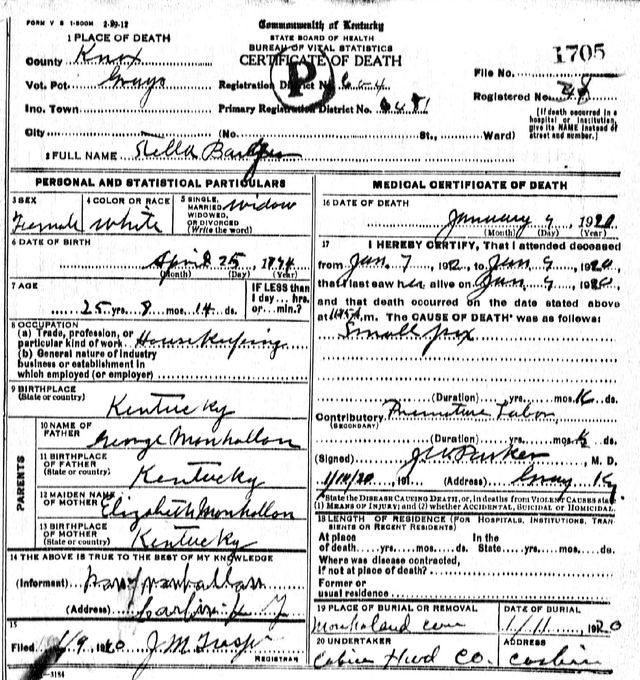 FORM V S 1-500M 2-29-12
Commonwealth of Kentucky
STATE BOARD OF HEALTH
BUREAU OF VITAL STATISTICS
CERTIFICATE OF DEATH
1705
1 PLACE OF DEATH
County Knox
Vot. Pct. Grays
Registration District No. 604
File No.
Inc. Town
Primary Registration District No. 6481
Registered No. 28
City (No. St., Ward)
[If death occurred in a hospital or institution, give its NAME instead of street and number.]
P
2 FULL NAME Stella
PERSONAL AND STATISTICAL PARTICULARS
3 SEX Female
4 COLOR OR RACE White
5 SINGLE, MARRIED, WIDOWED, OR DIVORCED (Write the word) Widow
6 DATE OF BIRTH
April 25, 1894
(Month) (Day) (Year)
7 AGE
25 yrs. 8 mos. 14 ds.
IF LESS than 1 day... hrs. or... min.?
8 OCCUPATION
(a) Trade, profession, or particular kind of work Housekeeping
(b) General nature of industry business or establishment in which employed (or employer)
9 BIRTHPLACE
(State or country) Kentucky
PARENTS
10 NAME OF FATHER George Monhollon
11 BIRTHPLACE OF FATHER (State or country) Kentucky
12 MAIDEN NAME OF MOTHER Elizabeth Monhollon
13 BIRTHPLACE OF MOTHER (State or country) Kentucky
14 THE ABOVE IS TRUE TO THE BEST OF MY KNOWLEDGE
(Informant)
(Address)
15
Filed 1/9 1920 J.M.
REGISTRAR
MEDICAL CERTIFICATE OF DEATH
16 DATE OF DEATH
January 9, 1920
(Month) (Day) (Year)
17 I HEREBY CERTIFY, That I attended deceased
from Jan. 7, 191 , to Jan 9, 1920,
that I last saw her alive on Jan 9, 1920,
and that death occurred on the date stated above
at m. The CAUSE OF DEATH was as follows:
Small pox
(Duration) yrs. mos. ds.
Contributory Premature Labor
(SECONDARY)
(Duration) yrs. mos. ds.
(Signed) Parker, M. D.
1/10/20, 191 (Address) Gray Ky
State the DISEASE CAUSING DEATH, or, in deaths from VIOLENT CAUSES state (1) MEANS OF INJURY; and (2) whether ACCIDENTAL, SUICIDAL or HOMICIDAL.
18 LENGTH OF RESIDENCE (FOR HOSPITALS, INSTITUTIONS, TRANSIENTS OR RECENT RESIDENTS)
At place of death....yrs....mos....ds. In the State....yrs....mos....ds.
Where was disease contracted, If not at place of death?
Former or usual residence
19 PLACE OF BURIAL OR REMOVAL
DATE OF BURIAL
1/11, 1920
20 UNDERTAKER
ADDRESS
Hwd Co. Corbin
-3184